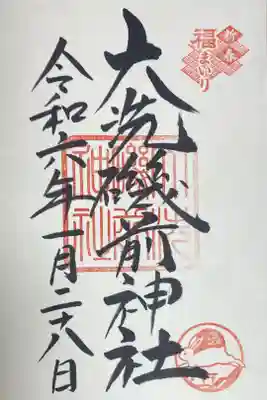 新春
福
まいり
大洗磯前神社
令和六年一月二十八日